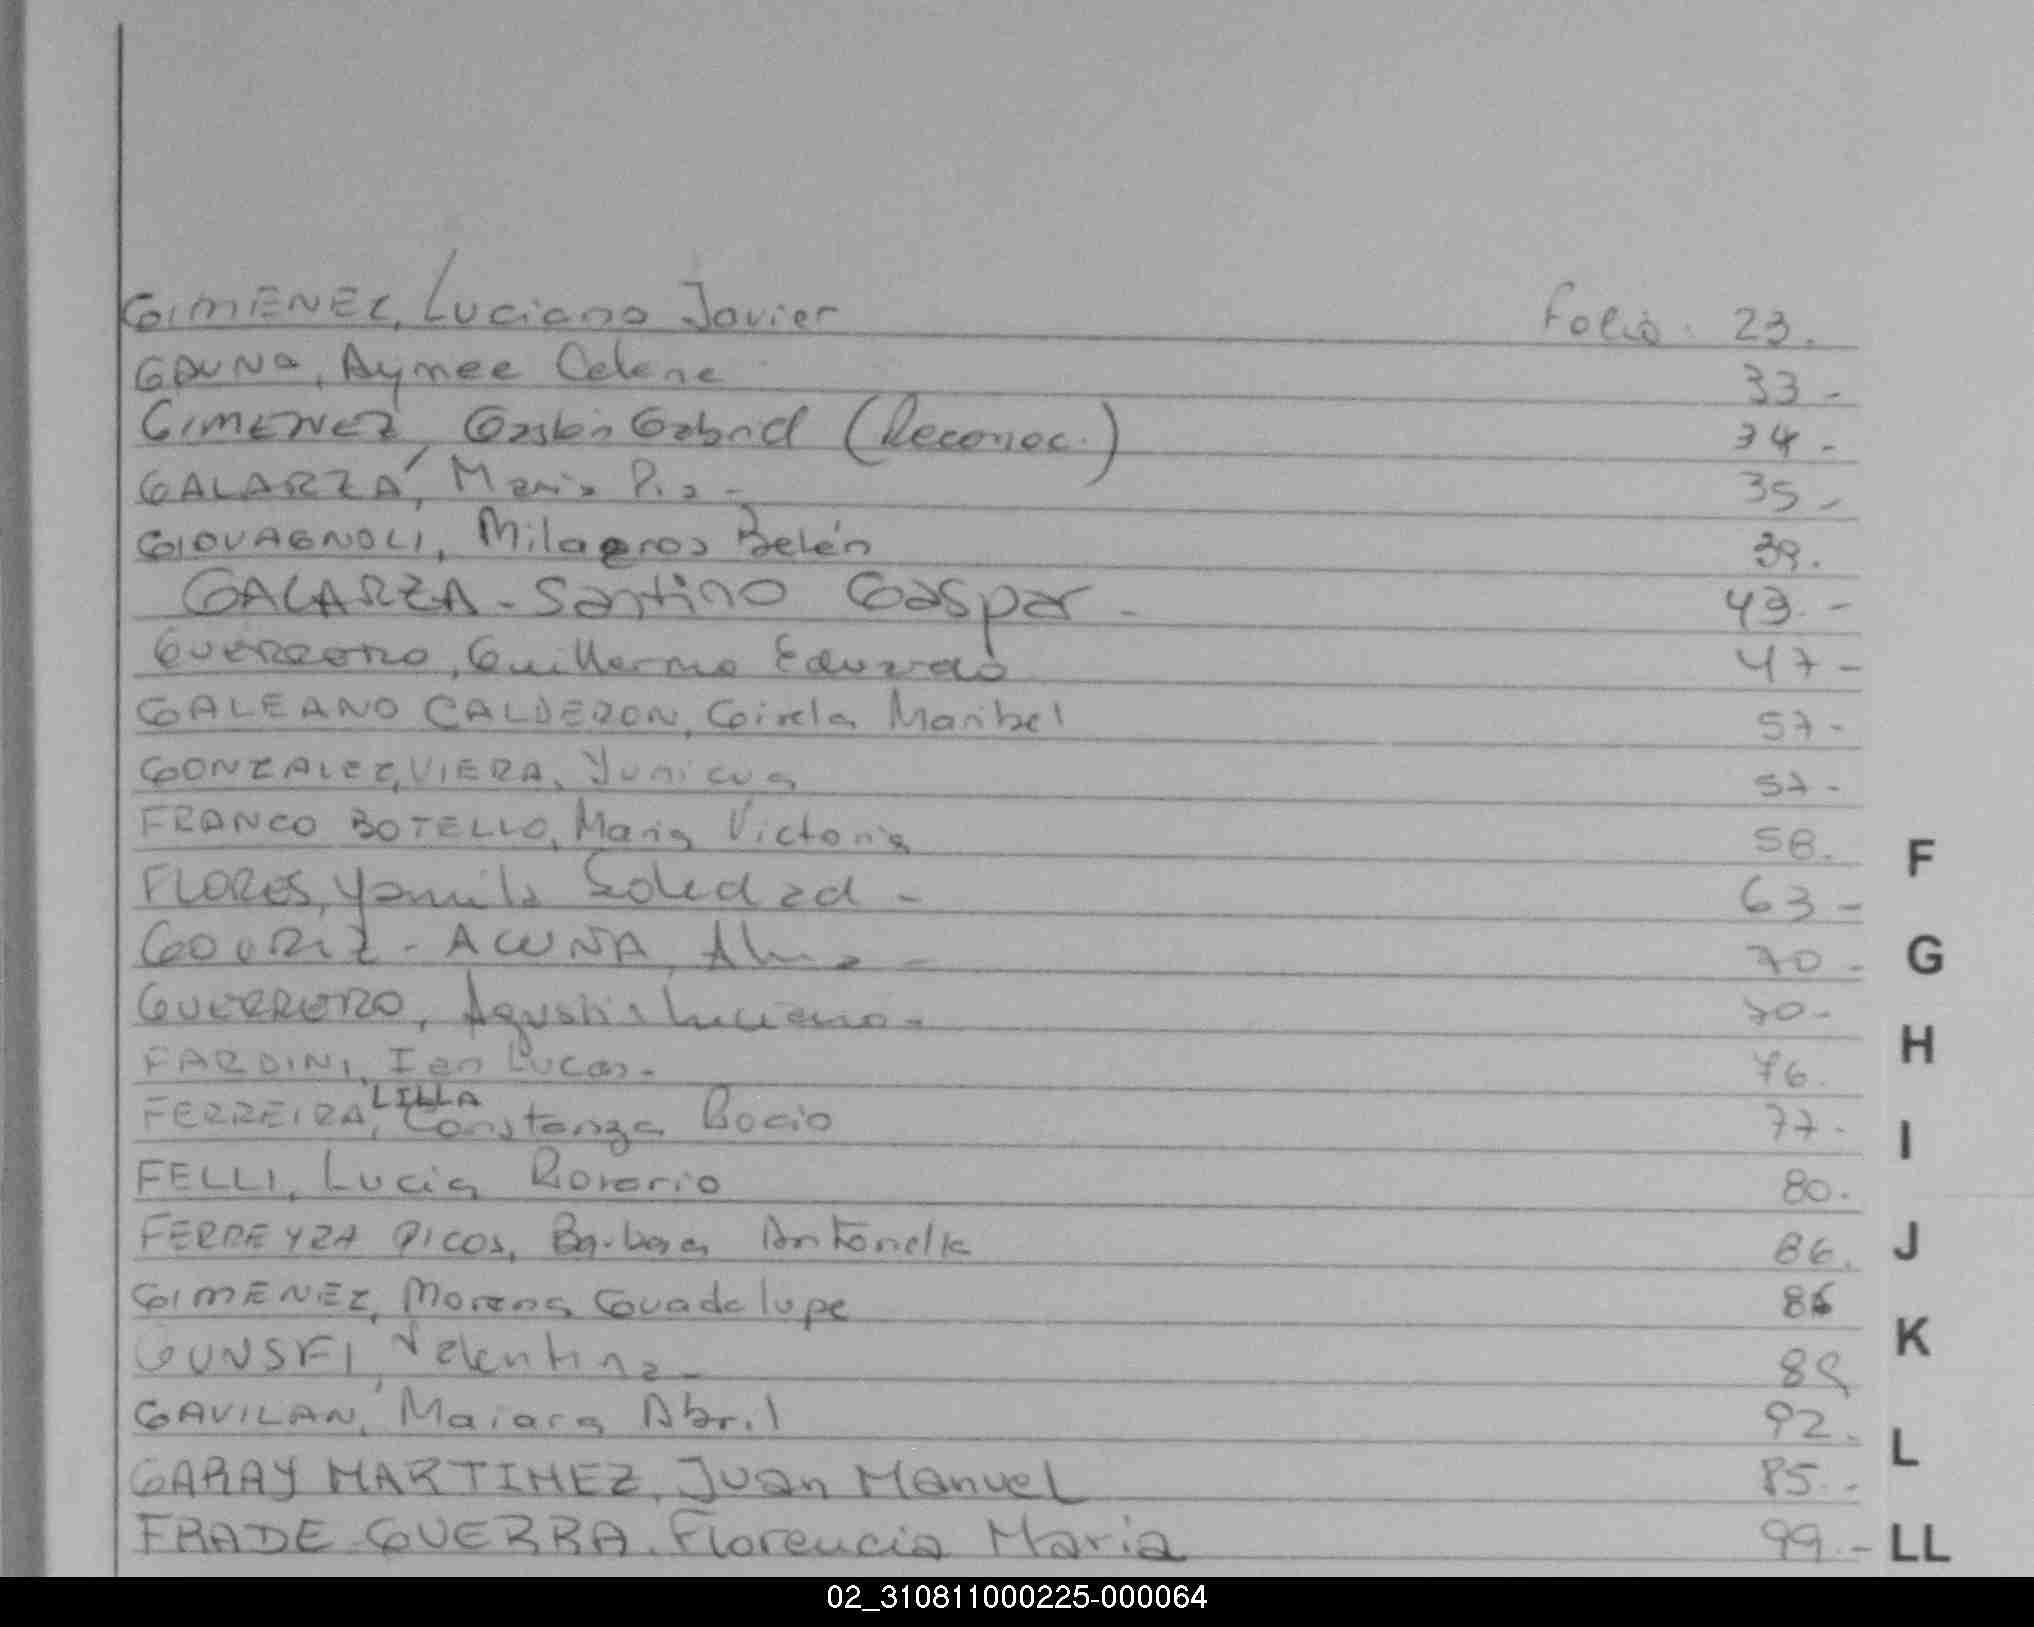 GIMENEZ, Luciano Javier Folio. 23.
GAUNA, Aymee Celene 33-
GIMENEZ, Gastón Gabriel (Reconoc.) 34-
GALARZA, Maria Pia- 35-
GIOVAGNOLI, Milagros Belén 39.
GALARZA - Santino Gaspar - 43.-
GUERRERO, Guillermo Eduardo 47-
GALEANO CALDERON, Gisela Maribel 57-
GONZALEZ, VIERA, 57-
FRANCO BOTELLO, Maria Victoria 58.
FLORES, Yamila Soledad - 63-
- ACUÑA, Alma - 70-
GUERRERO, Agustin Luciano- 70-
FARDINI, Ian Lucas- 76.
LILLA
FERREIRA, Constanza Rocio 77-
FELLI, Lucia Rosario 80.
FERREYRA PICOS, Barbara Antonella 86.
GIMENEZ, Morena Guadalupe 86
GUNSFI, Valentina- 89
GAVILAN, Maiara Abril 92.
GARAY MARTINEZ, Juan Manuel 95.-
FRADE GUERRA, Florencia Maria 99.-
F
G
H
I
J
K
L
LL
02_310811000225-000064